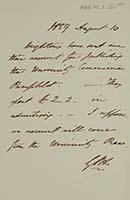 1859 August 10
Deightons have sent me
their account for publishing
the University Commission
Pamphlet. — They
to 2.2. in
advertising. — I suppose
an account will come
from the University Press